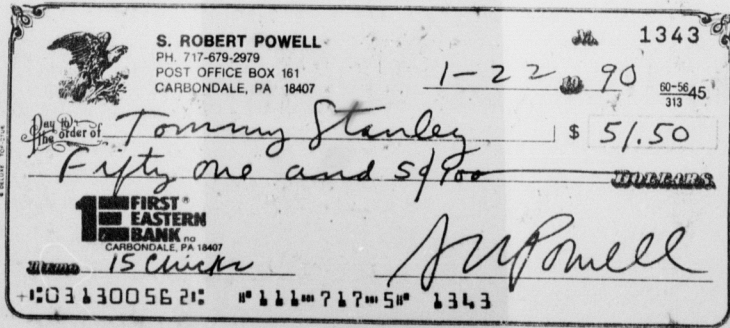 S. ROBERT POWELL
PH. 717-679-2979
POST OFFICE BOX 161
CARBONDALE, PA 18407
No. 1343
1-22 19 90
60-56 45
313
Pay to the order of Tommy Stanley $ 51.50
Fifty one and 50/100 DOLLARS
1E FIRST EASTERN BANK na
CARBONDALE, PA 18407
Memo 15 Chicks
SRPowell
⑆031300562⑆ ⑈111⑉717⑉5⑈ 1343